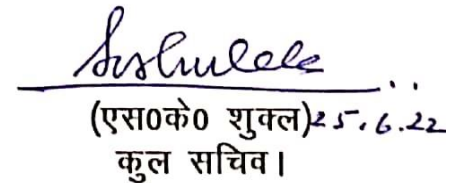 (एस0के0 शुक्ल) 25.6.22
कुल सचिव।